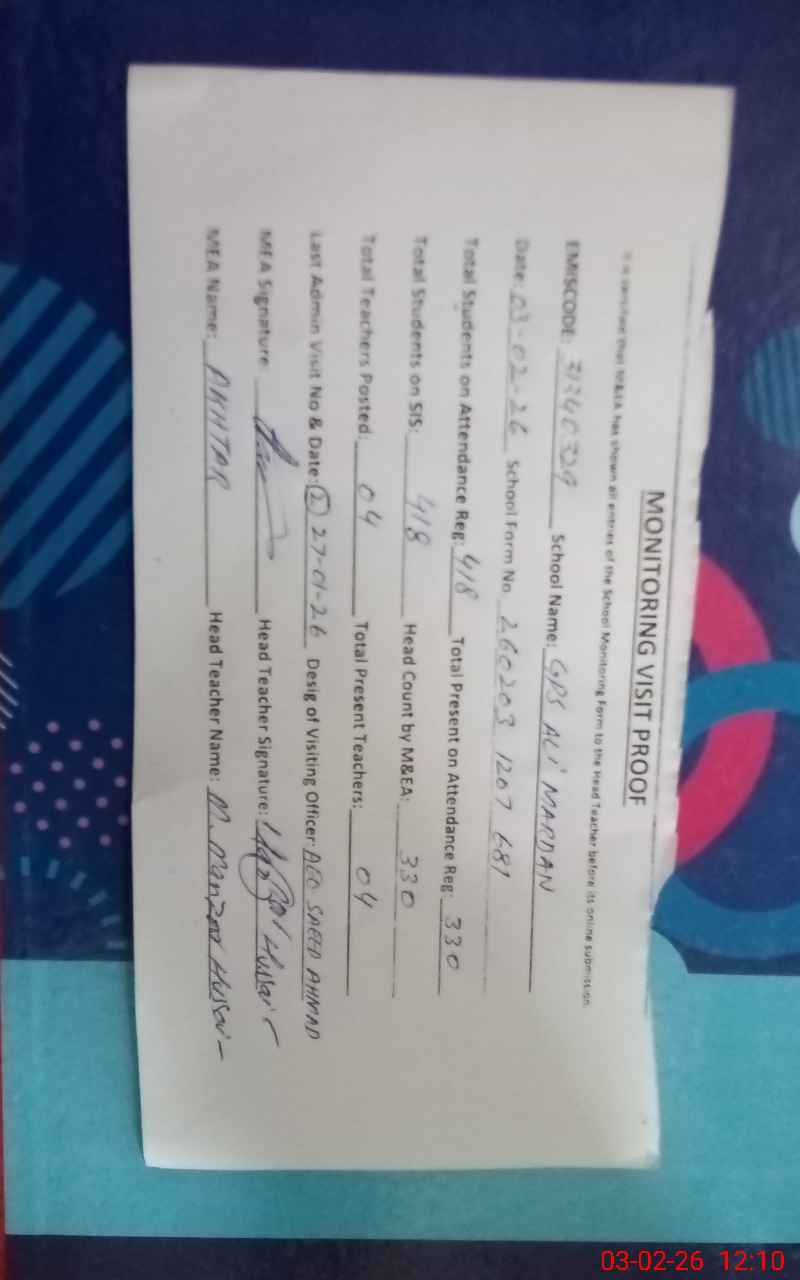 MONITORING VISIT PROOF
It is certified that M&EA has shown all entries of the School Monitoring Form to the Head Teacher before its online submission
EMISCODE: 31340329 School Name: GPS ALI MARDAN
Date: 03-02-26 School Form No. 260203 1207 681
Total Students on Attendance Reg: 418 Total Present on Attendance Reg: 330
Total Students on SIS: 418 Head Count by M&EA: 330
Total Teachers Posted: 04 Total Present Teachers: 04
Last Admin Visit No & Date: 2 27-01-26 Desig of Visiting Officer: AEO SAEED AHMAD
MEA Signature: Head Teacher Signature: Hussain
MEA Name: AKHTAR Head Teacher Name: M. Manzoor Hussain
03-02-26 12:10